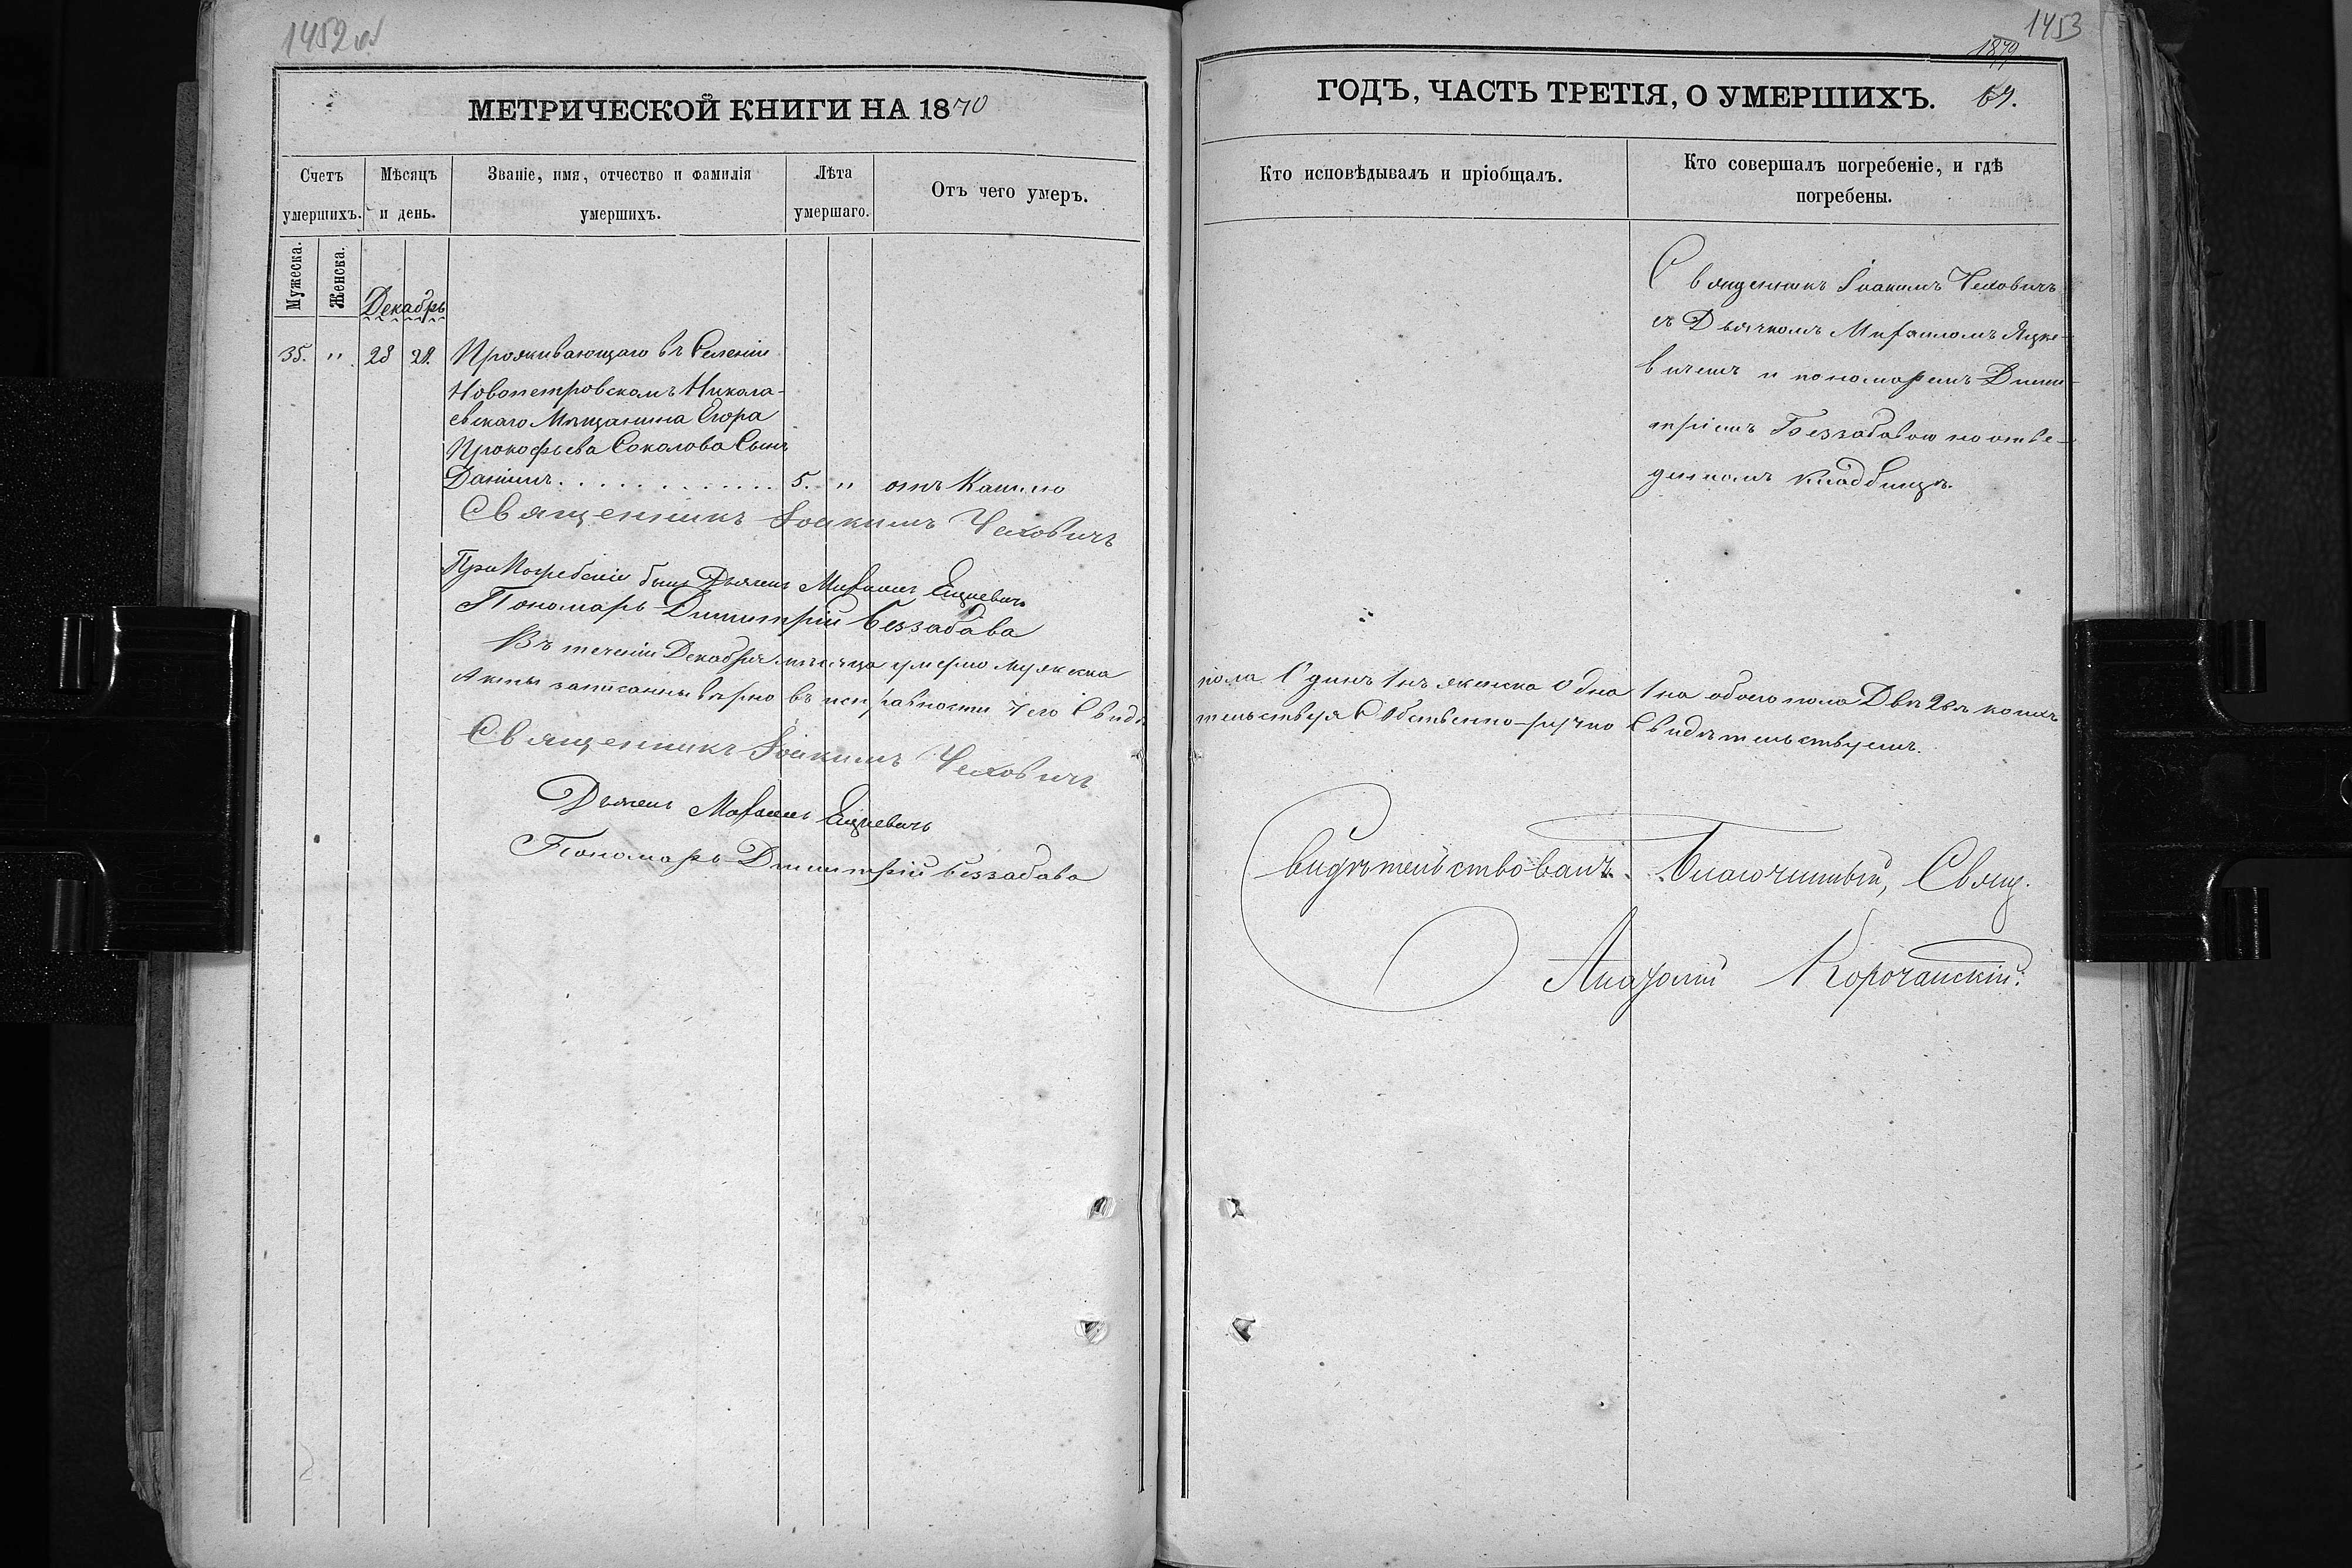 1452 об
МЕТРИЧЕСКОЙ КНИГИ НА 1870
Счетъ умершихъ.
Мѣсяцъ и день.
Званіе, имя, отчество и фамилія умершихъ.
Лѣта умершаго.
Отъ чего умеръ.
Мужеска.
Женска.
Декабрь
35. " 28 29. Проживающаго въ Селеніи
Новопетровскомъ Никола-
евскаго Мѣщанина Егора
Прокофьева Соколова Сынъ
Даніилъ. . . . . . . . . . . . . 5. " отъ Кашлю
Священникъ Іоакимъ Чеховичъ
При Погребеніи былъ Дьячекъ Михаилъ Ецкевичъ
Пономарь Димитрій Беззабава
Въ теченіи Декабря мѣсяца умерло мужеска
Акты записанны вѣрно въ исправности чего Свидѣ
Священникъ Іоакимъ Чеховичъ
Дьячекъ Михаилъ Ецкевичъ
Пономарь Димитрій Беззабава
1453
1879
ГОДЪ, ЧАСТЬ ТРЕТІЯ, О УМЕРШИХЪ. 67.
Кто исповѣдывалъ и пріобщалъ.
Кто совершалъ погребеніе, и гдѣ
погребены.
Священникъ Іоакимъ Чеховичъ
съ Дьячкомъ Михаиломъ Яцке-
вичемъ и пономаремъ Дими-
тріемъ Беззабавою на отве-
денномъ кладбищѣ.
пола Одинъ 1нъ женска Одна 1на обоего пола Двѣ 2вѣ коихъ
тельствуя Собственно-ручно Свидѣтельствуемъ.
Свидѣтельствовалъ Благочинный, Свящ.
Анатолій Корочанскій.